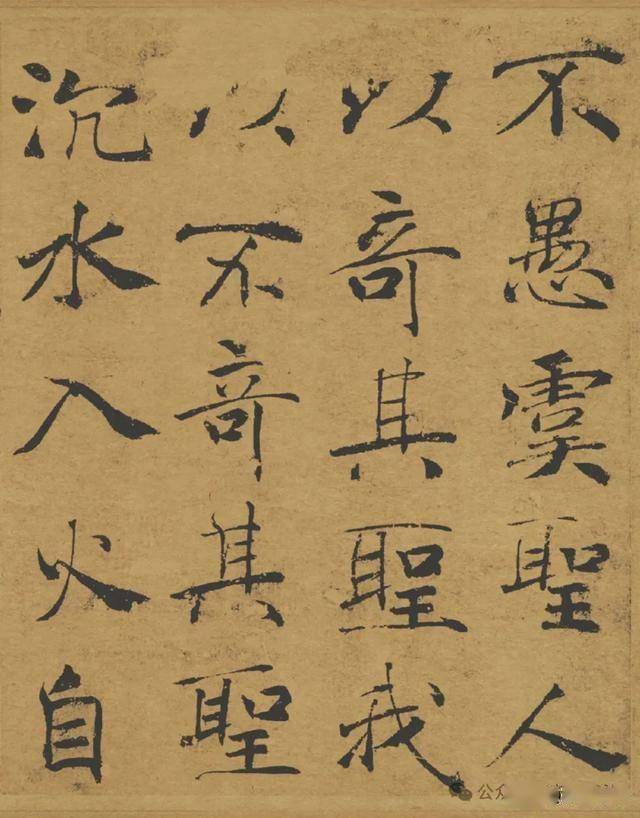 不愚虞聖人
以奇其聖我
以不奇其聖
沉水入火自
公众